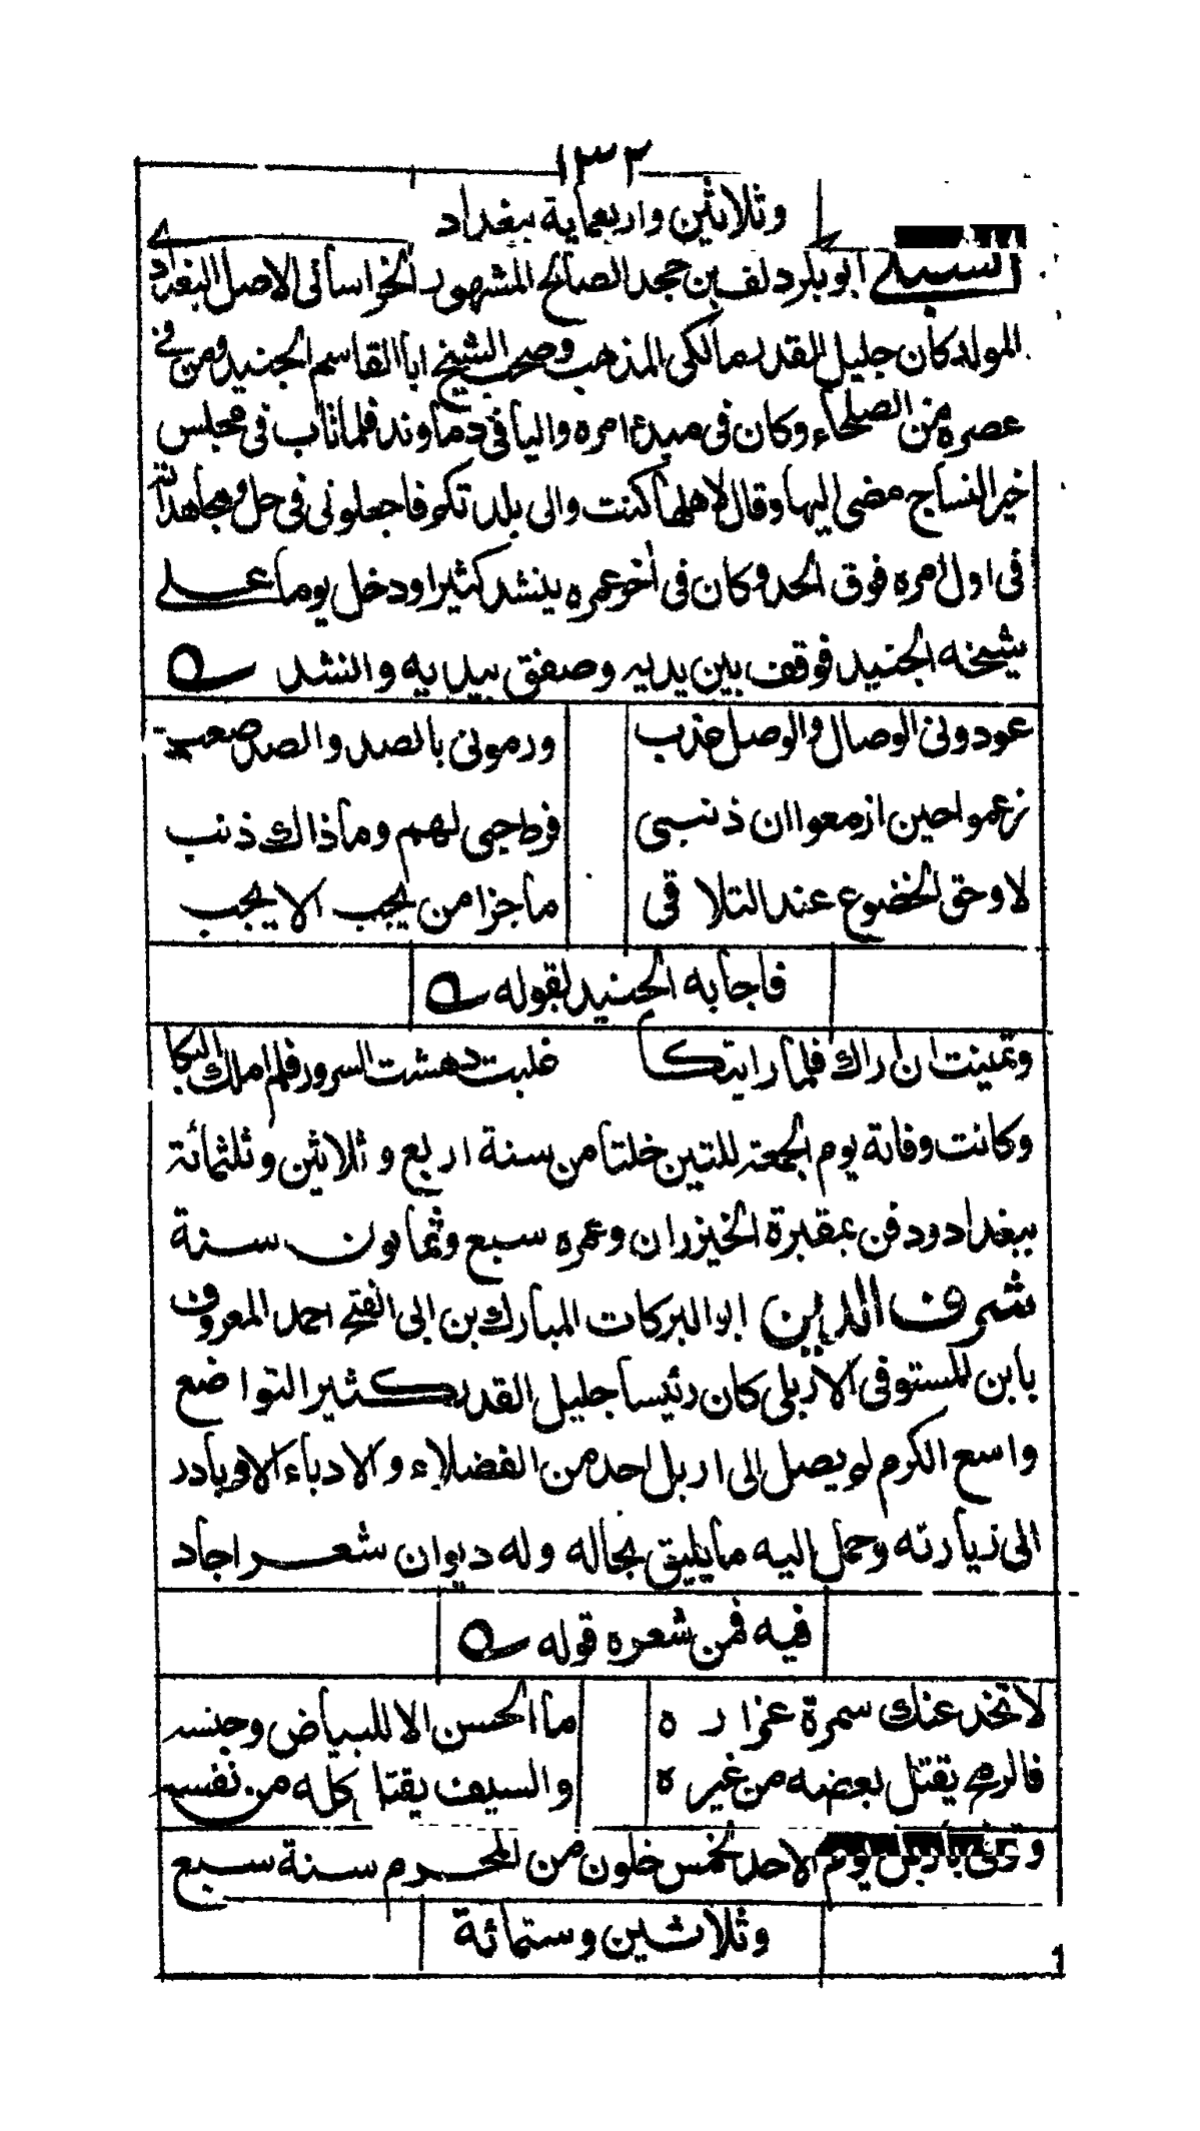 ١٣٣
وثلاثين واربعماية ببغداد
الشبلي ابو بكر دلف بن جحدر الصالح المشهور الخراسانى الاصل البغداد
المولد كان جليل القدر مالكى المذهب وصحب الشيخ ابا القاسم الجنيد ومن فى
عصره من الصلحاء وكان فى مبدء امره واليا فى دماوند فلما تاب فى مجلس
خير النساج مضى اليها وقال لاهلها كنت والى بلدتكم فاجعلونى فى حل ومجاهداته
فى اول امره فوق الحد وكان فى أخر عمره ينشد كثيرا ودخل يوما على
شيخه الجنيد فوقف بين يديه وصفق بيديه وانشد
عودونى الوصال والوصل عذب ورمونى بالصد والصد صعب
زعموا حين ازمعوا ان ذنبى فرط حبى لهم وما ذاك ذنب
لا وحق الخضوع عند التلاقى ما جزا من يحب الا يحب
فاجابه الجنيد بقوله
وتمنيت ان اراك فلما رايتكا غلبت دهشت السرور فلم املك البكا
وكانت وفاته يوم الجمعة لليلتين خلتا من سنة اربع وثلاثين وثلثمائة
ببغداد ودفن بمقبرة الخيزران وعمره سبع وثمانون سنة
شرف الدين ابو البركات المبارك بن ابى الفتح احمد المعروف
بابن المستوفى الاربلى كان رئيسا جليل القدر كثير التواضع
واسع الكرم لم يصل الى اربل احد من الفضلاء والادباء الا وبادر
الى زيارته وحمل اليه ما يليق بحاله وله ديوان شعر اجاد
فيه فمن شعره قوله
لا تخدعنك سمرة غراره ما الحسن الا للبياض وجنسه
فالرمح يقتل بعضه من غيره والسيف يقتل كله من نفسه
وتوفى باربل يوم الاحد لخمس خلون من المحرم سنة سبع
وثلاثين وستمائة